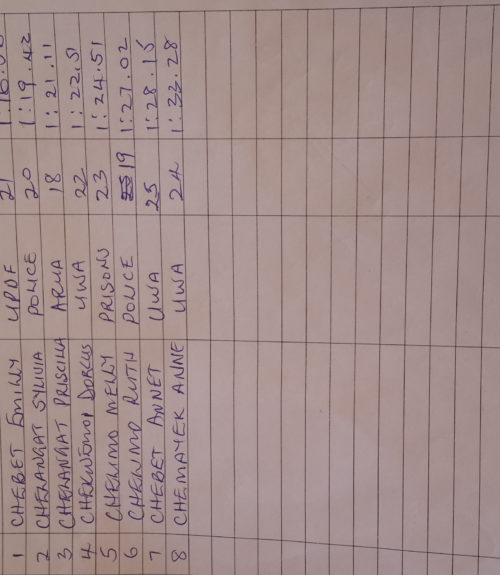 1 CHEBET EMILLY UPDF 21
2 CHELANGAT SYLIVIA POLICE 20 1:19.42
3 CHELANGAT PRISCILLA ARUA 18 1:21.11
4 DORCUS UWA 22 1:22.51
5 CHELIMO MELLY PRISONS 23 1:24.51
6 CHELIMO RUTH POLICE 19 1:27.02
7 CHEBET ANNET UWA 25 1:28.15
8 CHEMAYEK ANNE UWA 24 1:32.28